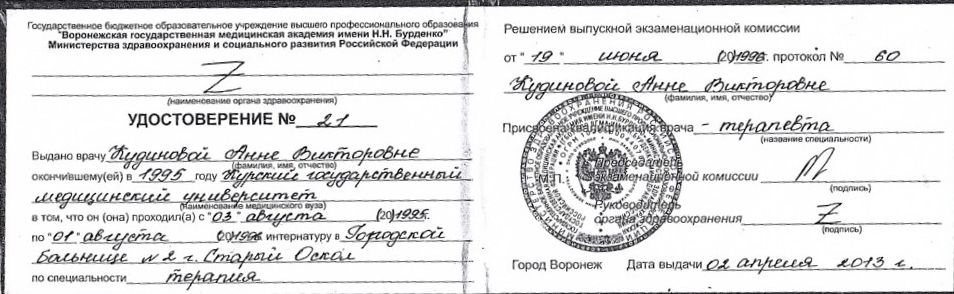 Государственное бюджетное образовательное учреждение высшего профессионального образования
"Воронежская государственная медицинская академия имени Н.Н. Бурденко"
Министерства здравоохранения и социального развития Российской Федерации
Z
(наименование органа здравоохранения)
УДОСТОВЕРЕНИЕ № 21
Выдано врачу Кудиновой Анне Викторовне
(фамилия, имя, отчество)
окончившему(ей) в 1995 году Курский государственный
медицинский университет
(Наименование медицинского вуза)
в том, что он (она) проходил(а) с "03" августа (20)1995г.
по "01" августа (20)1996г. интернатуру в Городской
больнице № 2 г. Старый Оскол
по специальности терапия
Решением выпускной экзаменационной комиссии
от "19" июня (20)1996г. протокол № 60
Кудиновой Анне Викторовне
(фамилия, имя, отчество)
Присвоена квалификация врача - терапевта
(название специальности)
Председатель
М.П. экзаменационной комиссии
(подпись)
Руководитель
органа здравоохранения Z
(подпись)
Город Воронеж Дата выдачи 02 апреля 2013 г.